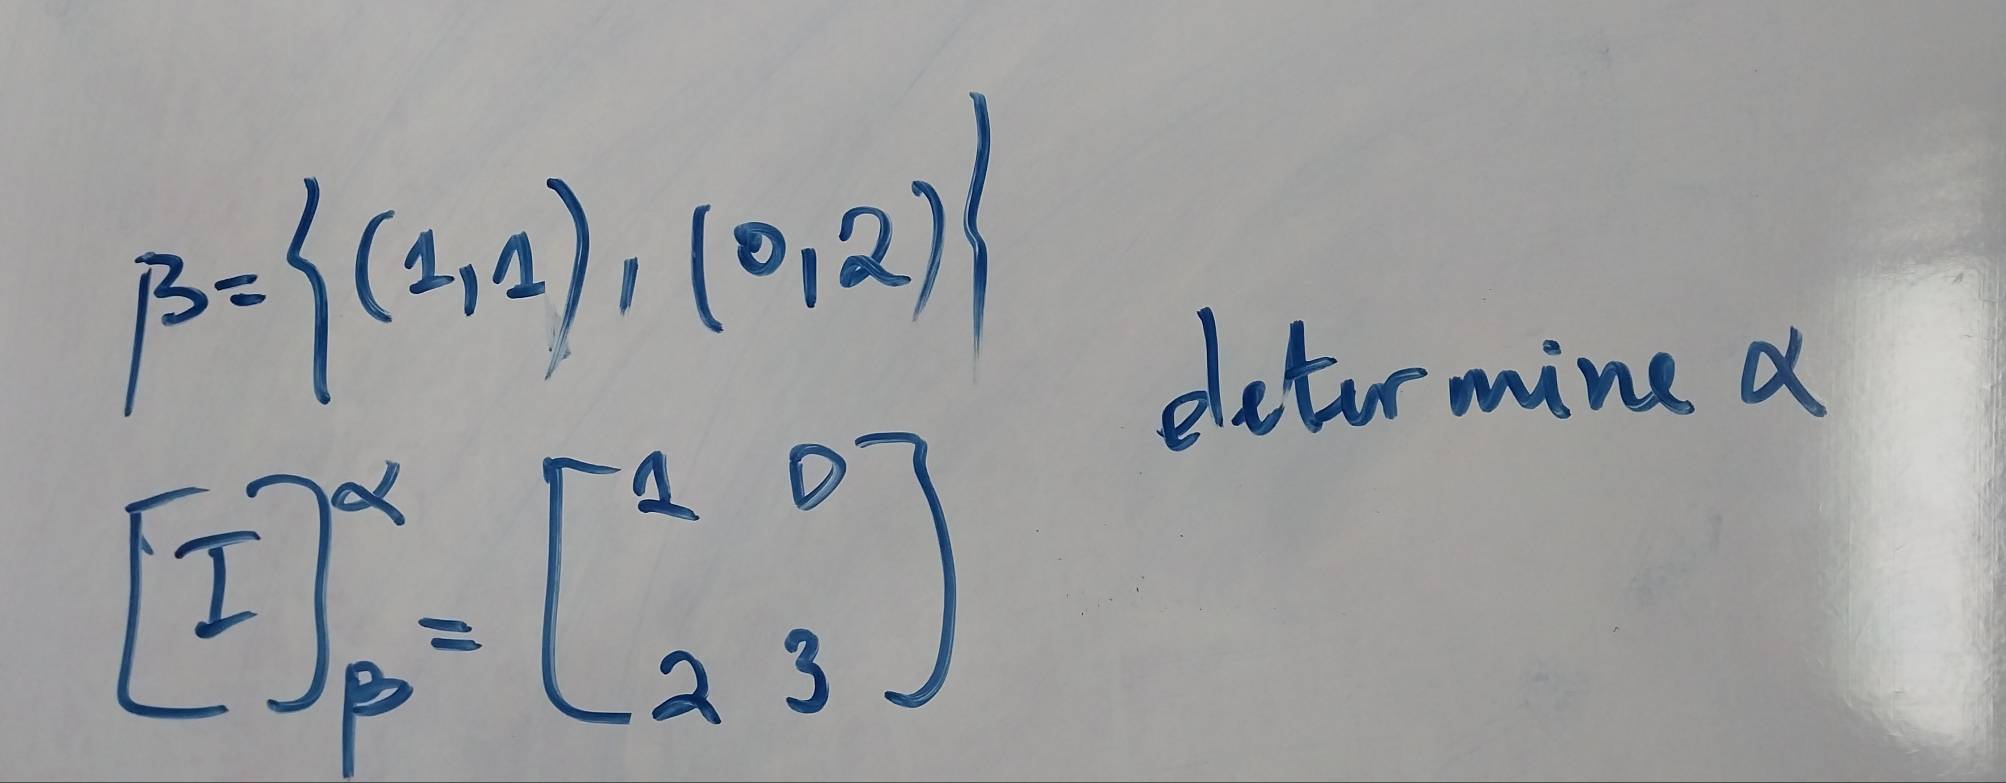 β = {(1,1), (0,2)}
determine α
[I]^α_β = [1 0
2 3]